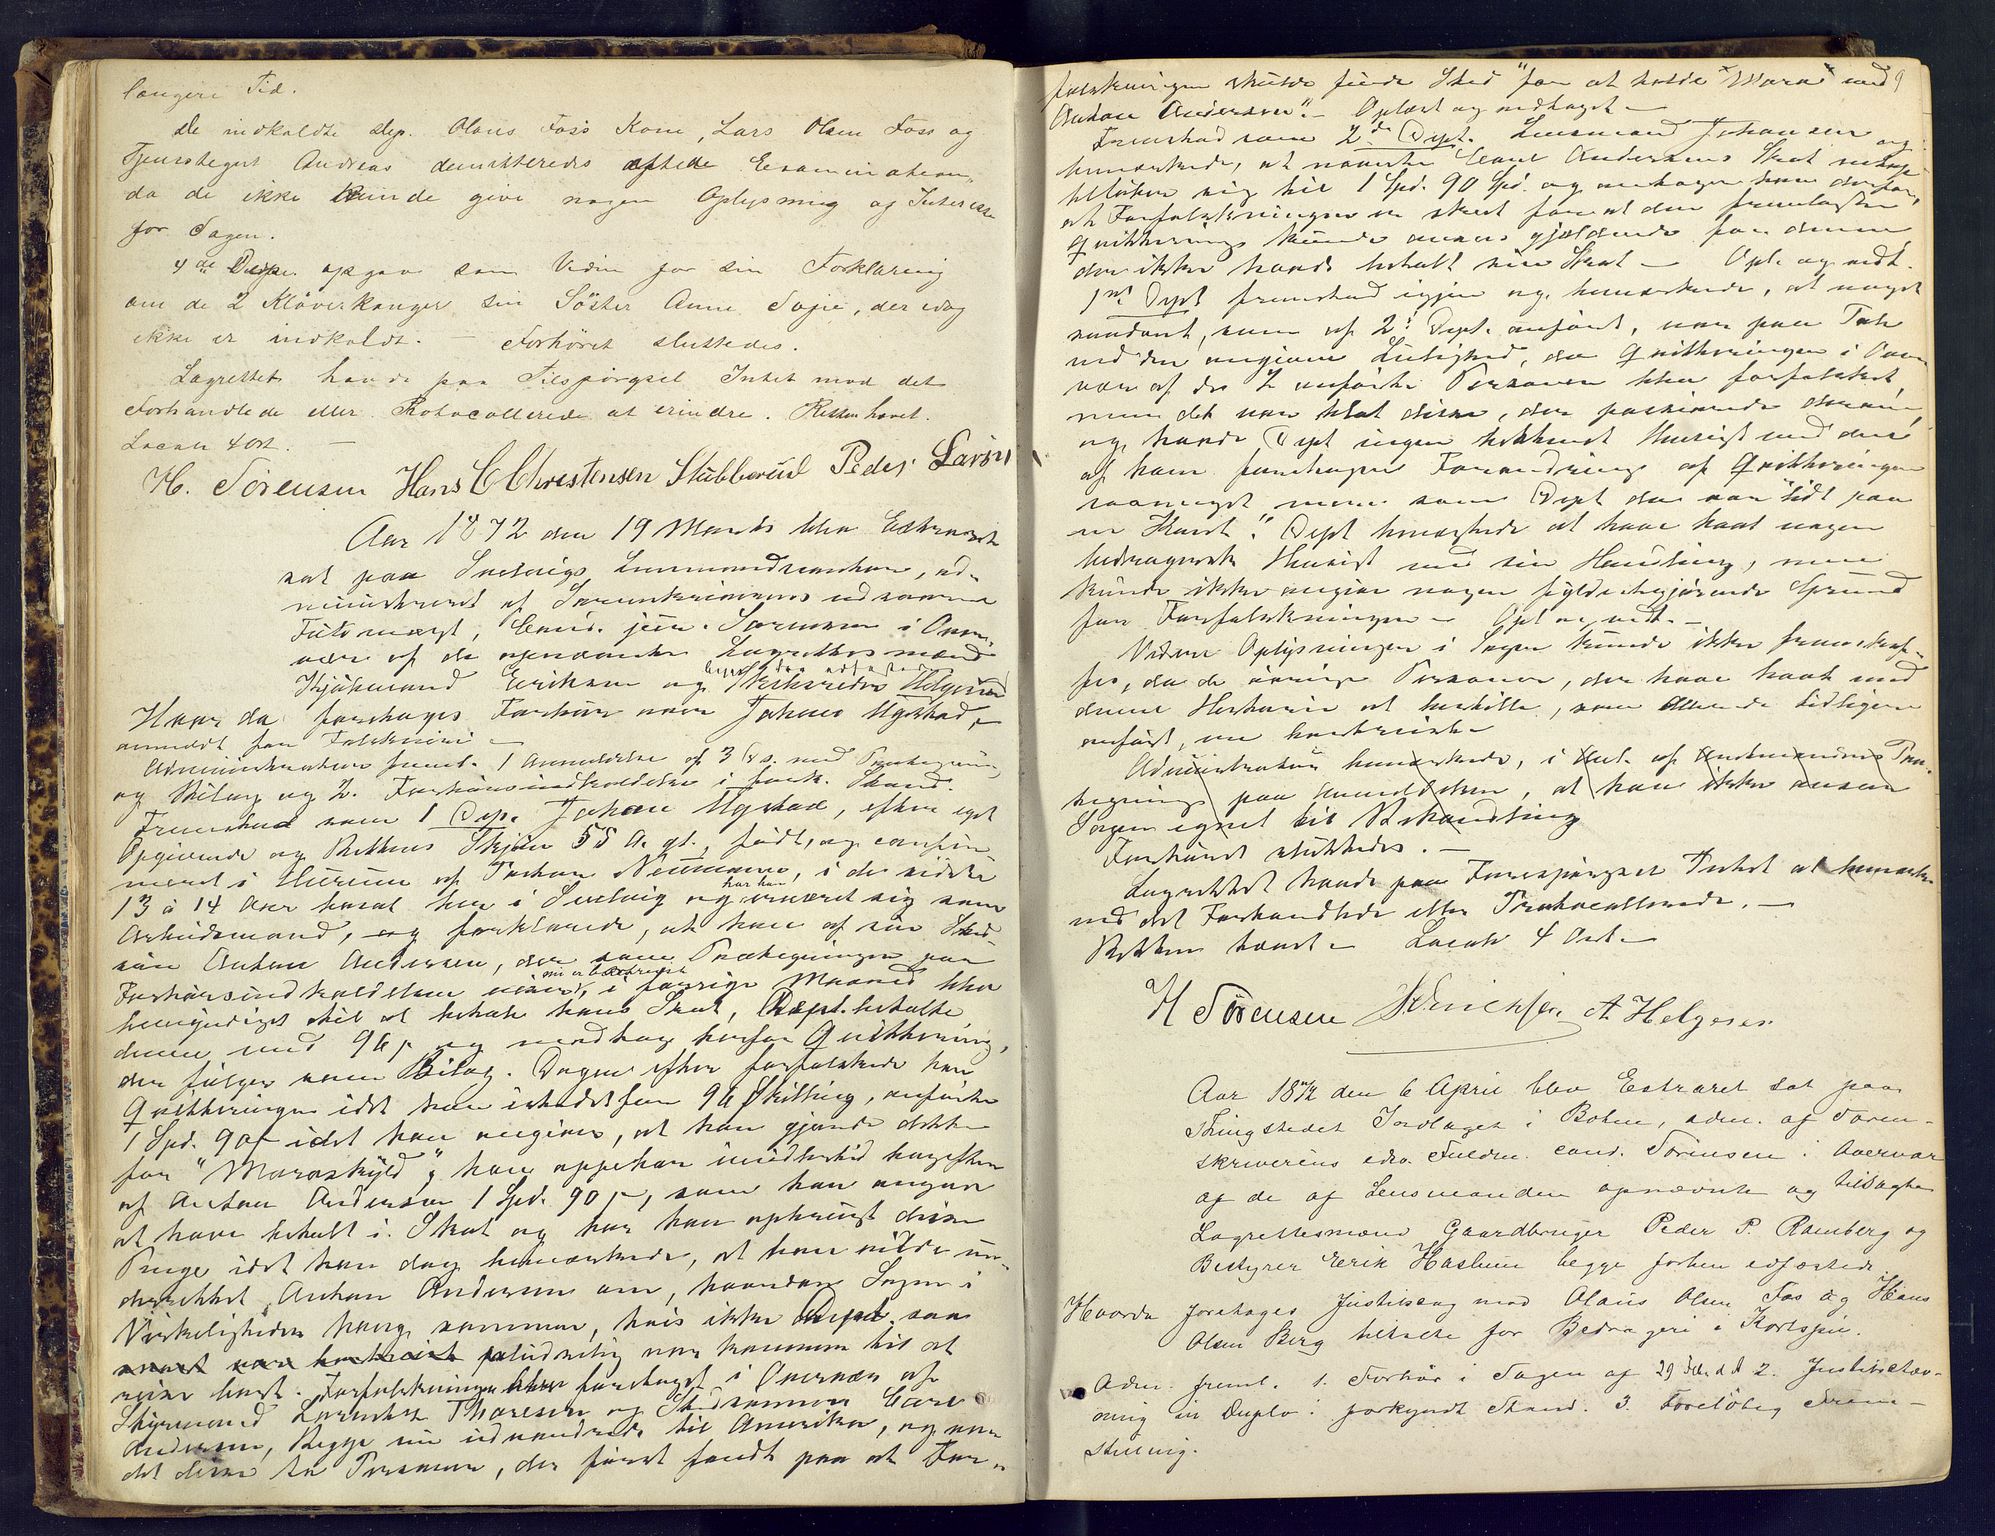 længere Tid.
De indkaldte Dep. Olaus Foss Kone, Lars Olsen Foss og
Tjenestegut Andreas demitteredes efter Examination,
da de ikke kunde give nogen Oplysning af Interesse
for Sagen.
4de Dep. opgav som Vidne for sin Forklaring
om de 2 Kløverkonger sin Søster Anne Sofie, der idag
ikke er indkaldt. — Forhøret sluttedes.
Lagrettet havde paa Tilspørgsel Intet mod det
Forhandlede eller Protocollerede at erindre. Retten hævet.
Locale 4 Ort. —
H. Sørensen Hans C Christensen Stubberud Peder Larsen
Aar 1872 den 19 Marts blev Extraret
sat paa Svelvigs Lensmandscontoir, ad-
ministreret af Sorenskriverens edsvorne
Fuldmægt, Cand. jur. Sørensen i Over-
vær af de opnævnte Lagrettesmænd
Kjøbmand Eriksen og Helgesen
Hvor da foretoges Forhør over Johan Ugstad,
anmeldt for Falskneri —
Administrator freml. 1 Anmeldelse af 3 ds. med Paategning
og Bilag og 2. Forhørsindkaldelse i fork. Stand.
Fremstod som 1 Dep. Johan Ugstad, efter eget
Opgivende og Rettens Skjøn 55 A. gl., født og confir-
meret i Hurum af Pastor Neumann, i de sidste
13 à 14 Aar boet her i Svelvig og har han ernæret sig som
Arbeidsmand, og forklarede, at han af sin Sted-
søn Anton Andersen, der som Paategningen paa
Forhørsindkaldelsen viser, i forrige Maaned blev
bemyndiget til at betale hans Skat, Dept. betalte
denne med 96 s og modtog herfor Qvittering,
der følger som Bilag. Dagen efter forfalskede han
Qvitteringen idet han istedetfor 96 Skilling, anførte
1 Spd. 90 s idet han angiver, at han gjorde dette
for "Moroskyld"; han oppebar imidlertid bagefter
af Anton Andersen 1 Spd. 90 s, som han angav
at have betalt i Skat og har han opbrugt disse
Penge idet han dog bemærkede, at han vilde un-
derrettet Anton Andersen om, hvordan Sagen i
Virkeligheden hang sammen, hvis ikke Dept. saa
pludselig var kommen til at
reise bort. Forfalskningen blev foretaget i Overvær af
Styrmand Lorentz Thoresen og Stedsønnen Carl
Andersen, Begge nu udvandrede til Amerika, og var
det disse to Personer, der først fandt paa at For-
9
falskningen skulde finde Sted "for at holde Moro med
Anton Andersen". — Oplæst og vedtaget —
Fremstod som 2de Dept. Lensmand Johansen og
bemærkede, at nævnte Carl Andersens Skat netop
beløber sig til 1 Spd. 90 s og antager han derfor,
at Forfalskningen er skeet for at den fremlagte
Qvittering kunde ansees gjældende for denne,
der ikke havde betalt sin Skat — Opl. og vedt.
1ste Dept fremstod igjen og bemærkede, at noget
saadant, som af 2. Dept. anført, var paa Tale
ved den angivne Leilighed, da Qvitteringen i Over-
vær af de 2 anførte Personer blev forfalsket,
men det var blot disse, der passiarede derom,
og havde Dept ingen bestemt Hensigt med den
af ham foretagne Forandring af Qvitteringen
saameget mere som Dept da var "lidt paa
en Kant". Dept benægtede at have havt nogen
bedragersk Hensigt med sin Handling, men
kunde ikke angive nogen fyldestgjørende Grund
for Forfalskningen — Opl og vedt. —
Videre Oplysninger i Sagen kunde ikke fremskaf-
fes, da de øvrige Personer, der have havt med
denne Historie at bestille, som allerede tidligere
anført, ere bortreiste
Administrator bemærkede, i Hen. af Amtmandens Paa-
tegning paa Anmeldelsen, at han ikke ansaa
Sagen egnet til Behandling
Forhøret sluttedes. —
Lagrettet havde paa Forespørgsel Intet at bemærke
ved det Forhandlede eller Protocollerede. —
Retten hævet — Locale 4 Ort —
H Sørensen A Helgesen
Aar 1872 den 6 April blev Extraret sat paa
Thingstedet Jordlaget i Bohm, adm. af Soren-
skriverens edsv. Fuldm. cand. Sørensen i Overvær
af de af Lensmanden opnævnte og tilsagte
Lagrettesmænd Gaardbruger Peder P. Ramberg og
Bestyrer Erik Haslum begge forhen edfæstede.
Hvorda foretoges Justitssag mod Olaus Olsen Fos og Hans
Olsen Berg tiltalte for Bedrageri i Kortspil.
Adm. freml. 1. Forhør i Sagen af 29 Febr. d. A. 2. Justitsstæv-
ning in Duplo i forkyndt Stand. 3. Foreløbig Frem-
stilling.